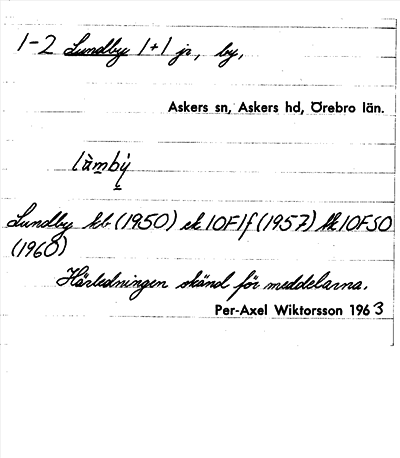 1-2 Lundby 1+1 jr, by,
Askers sn, Askers hd, Örebro län.
làmbý
Lundby kb (1950) ek 10F1f (1957) tk 10F SO
(1960)
Härledningen okänd för meddelarna.
Per-Axel Wiktorsson 1963